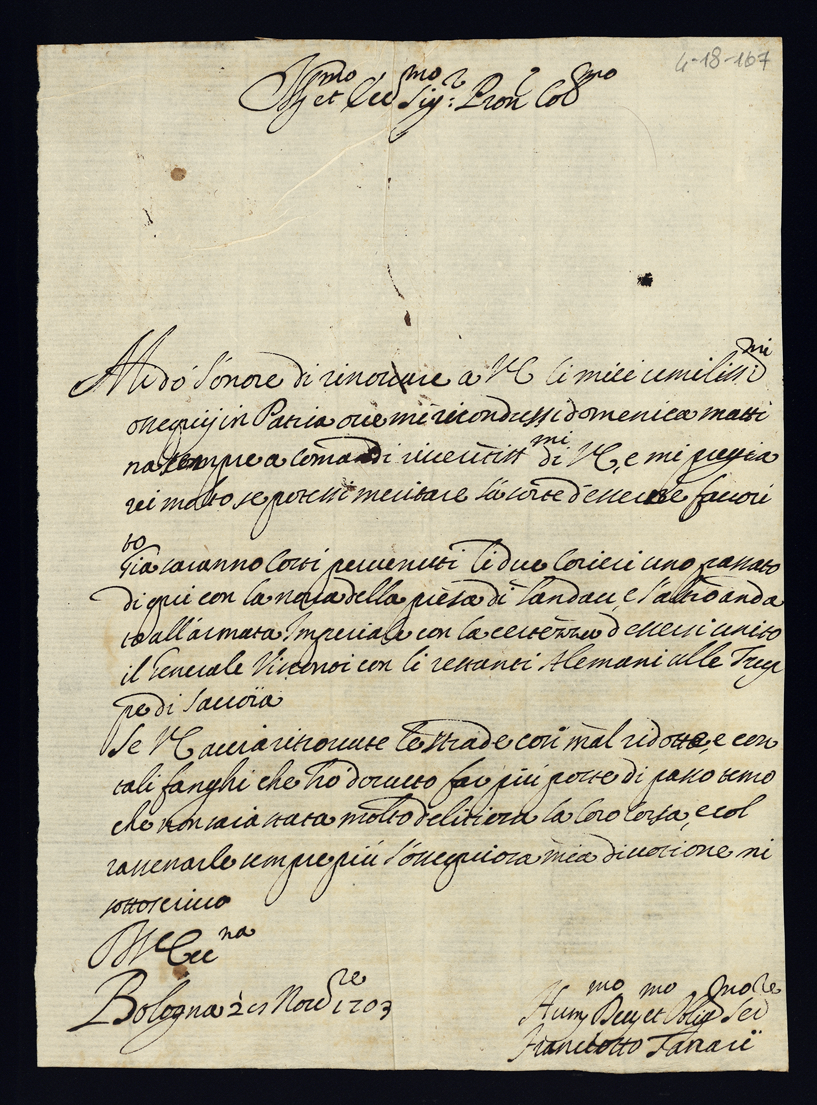 4-18-167
Ill.mo et Ecc.mo Sig.r Pron Col.mo
Mi dó l'onore di rinovare a VE li miei umiliss.mi
ossequij in Patria ove mi ricondussi domenica matti
na sempre a comandi riveritiss.mi di VE, e mi pregia
rei molto se potessi meritare la sorte d'esserne favori
to
Già saranno costi pervenuti li due Corieri uno passato
di qui con la nova della presa di Landau, e l'altro anda
to all'armata Imperiale con la certezza d'essersi unito
il Generale Visconti con li restanti Alemani alle Trup
pe di Savoia
Se VE avrà ritrovate le strade così mal ridotte, e con
tali fanghi che hò dovuto far più poste di passo temo
che non sarà stata molto delitiosa la loro Corsa, e col
rassenarle sempre più l'ossequiosa mia divotione mi
sottoscrivo
Di V. Ecc.na
Bologna 2 es Nov.re 1703
Hum.mo Dev.mo et Oblig.mo Ser.re
Franciotto Tanari